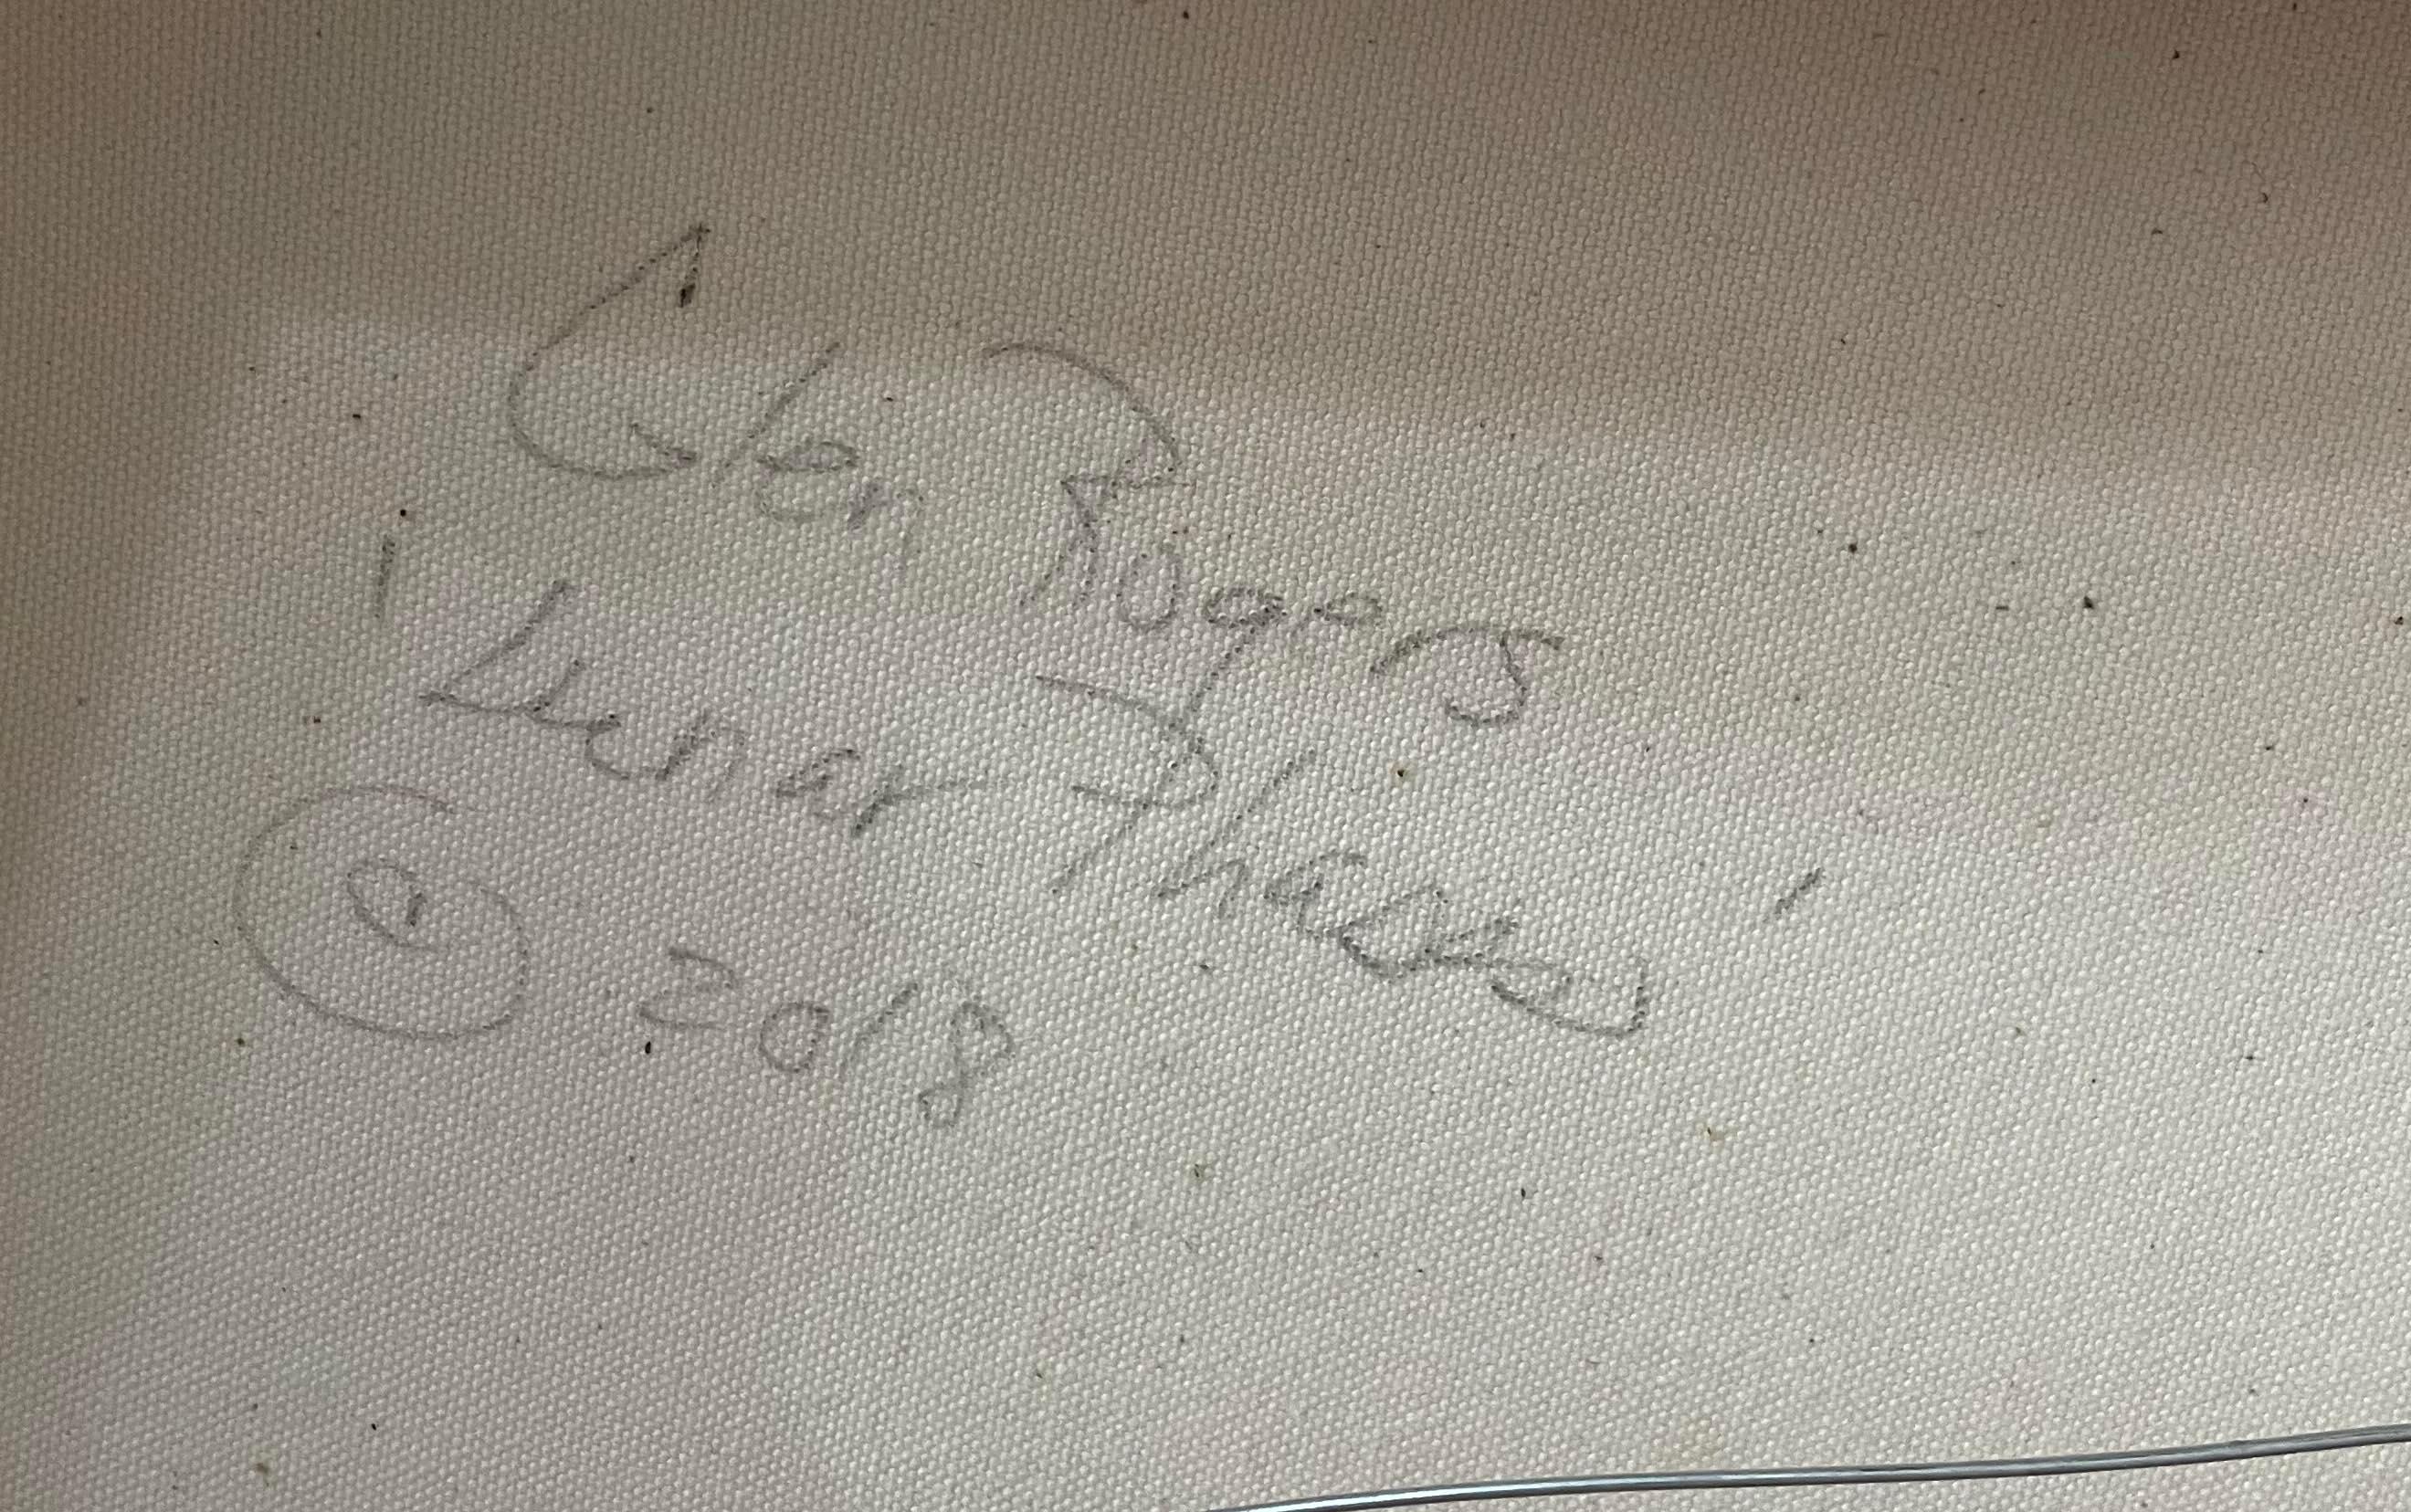 Glen Rogers
'Lunar Phases'
© 2018